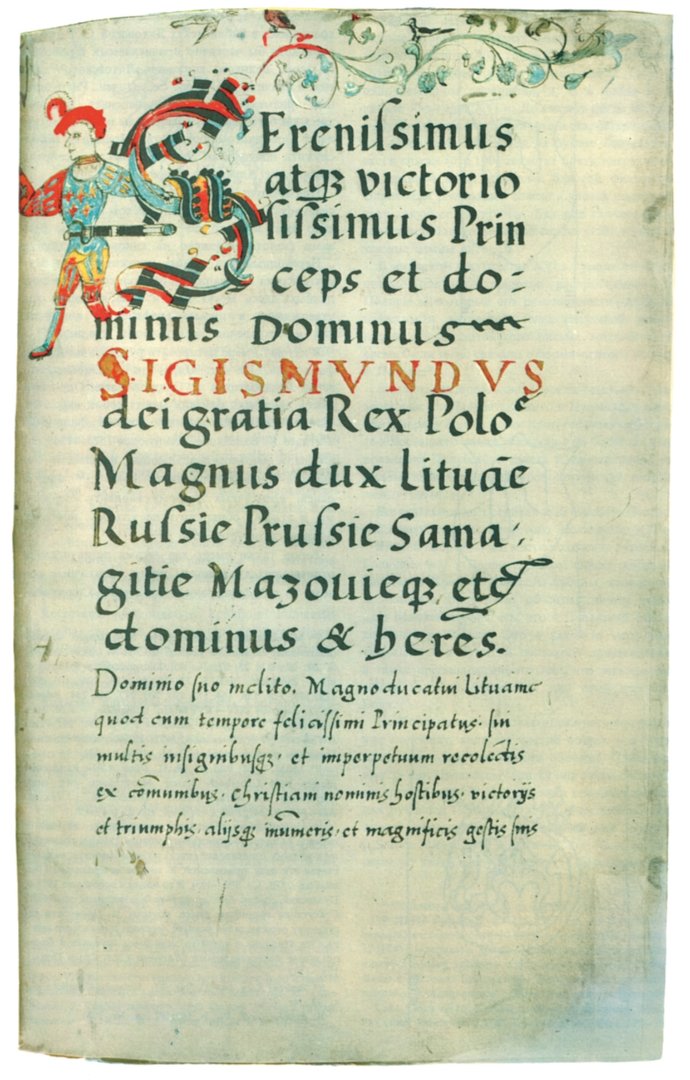 SEreniſsimus
atqꝫ victorio
ſiſsimus Prin
ceps et do:
minus Dominus
SIGISMVNDVS
dei gratia Rex Poloᵉ
Magnus dux Lituāe
Ruſsie Pruſsie Sama:
gitie Mazouieqꝫ etc
dominus & heres.
Dominio ſuo inclito. Magnoducatui Lituanie
quod eum tempore feliciſſimi Principatus. ſui
multis inſignibuſqꝫ. et imperpetuum recolectis
ex cōmunibus. Chriſtiani nominis hoſtibus. victorijs
et triumphis. alijsqꝫ inumeris. et magnificis geſtis ſuis